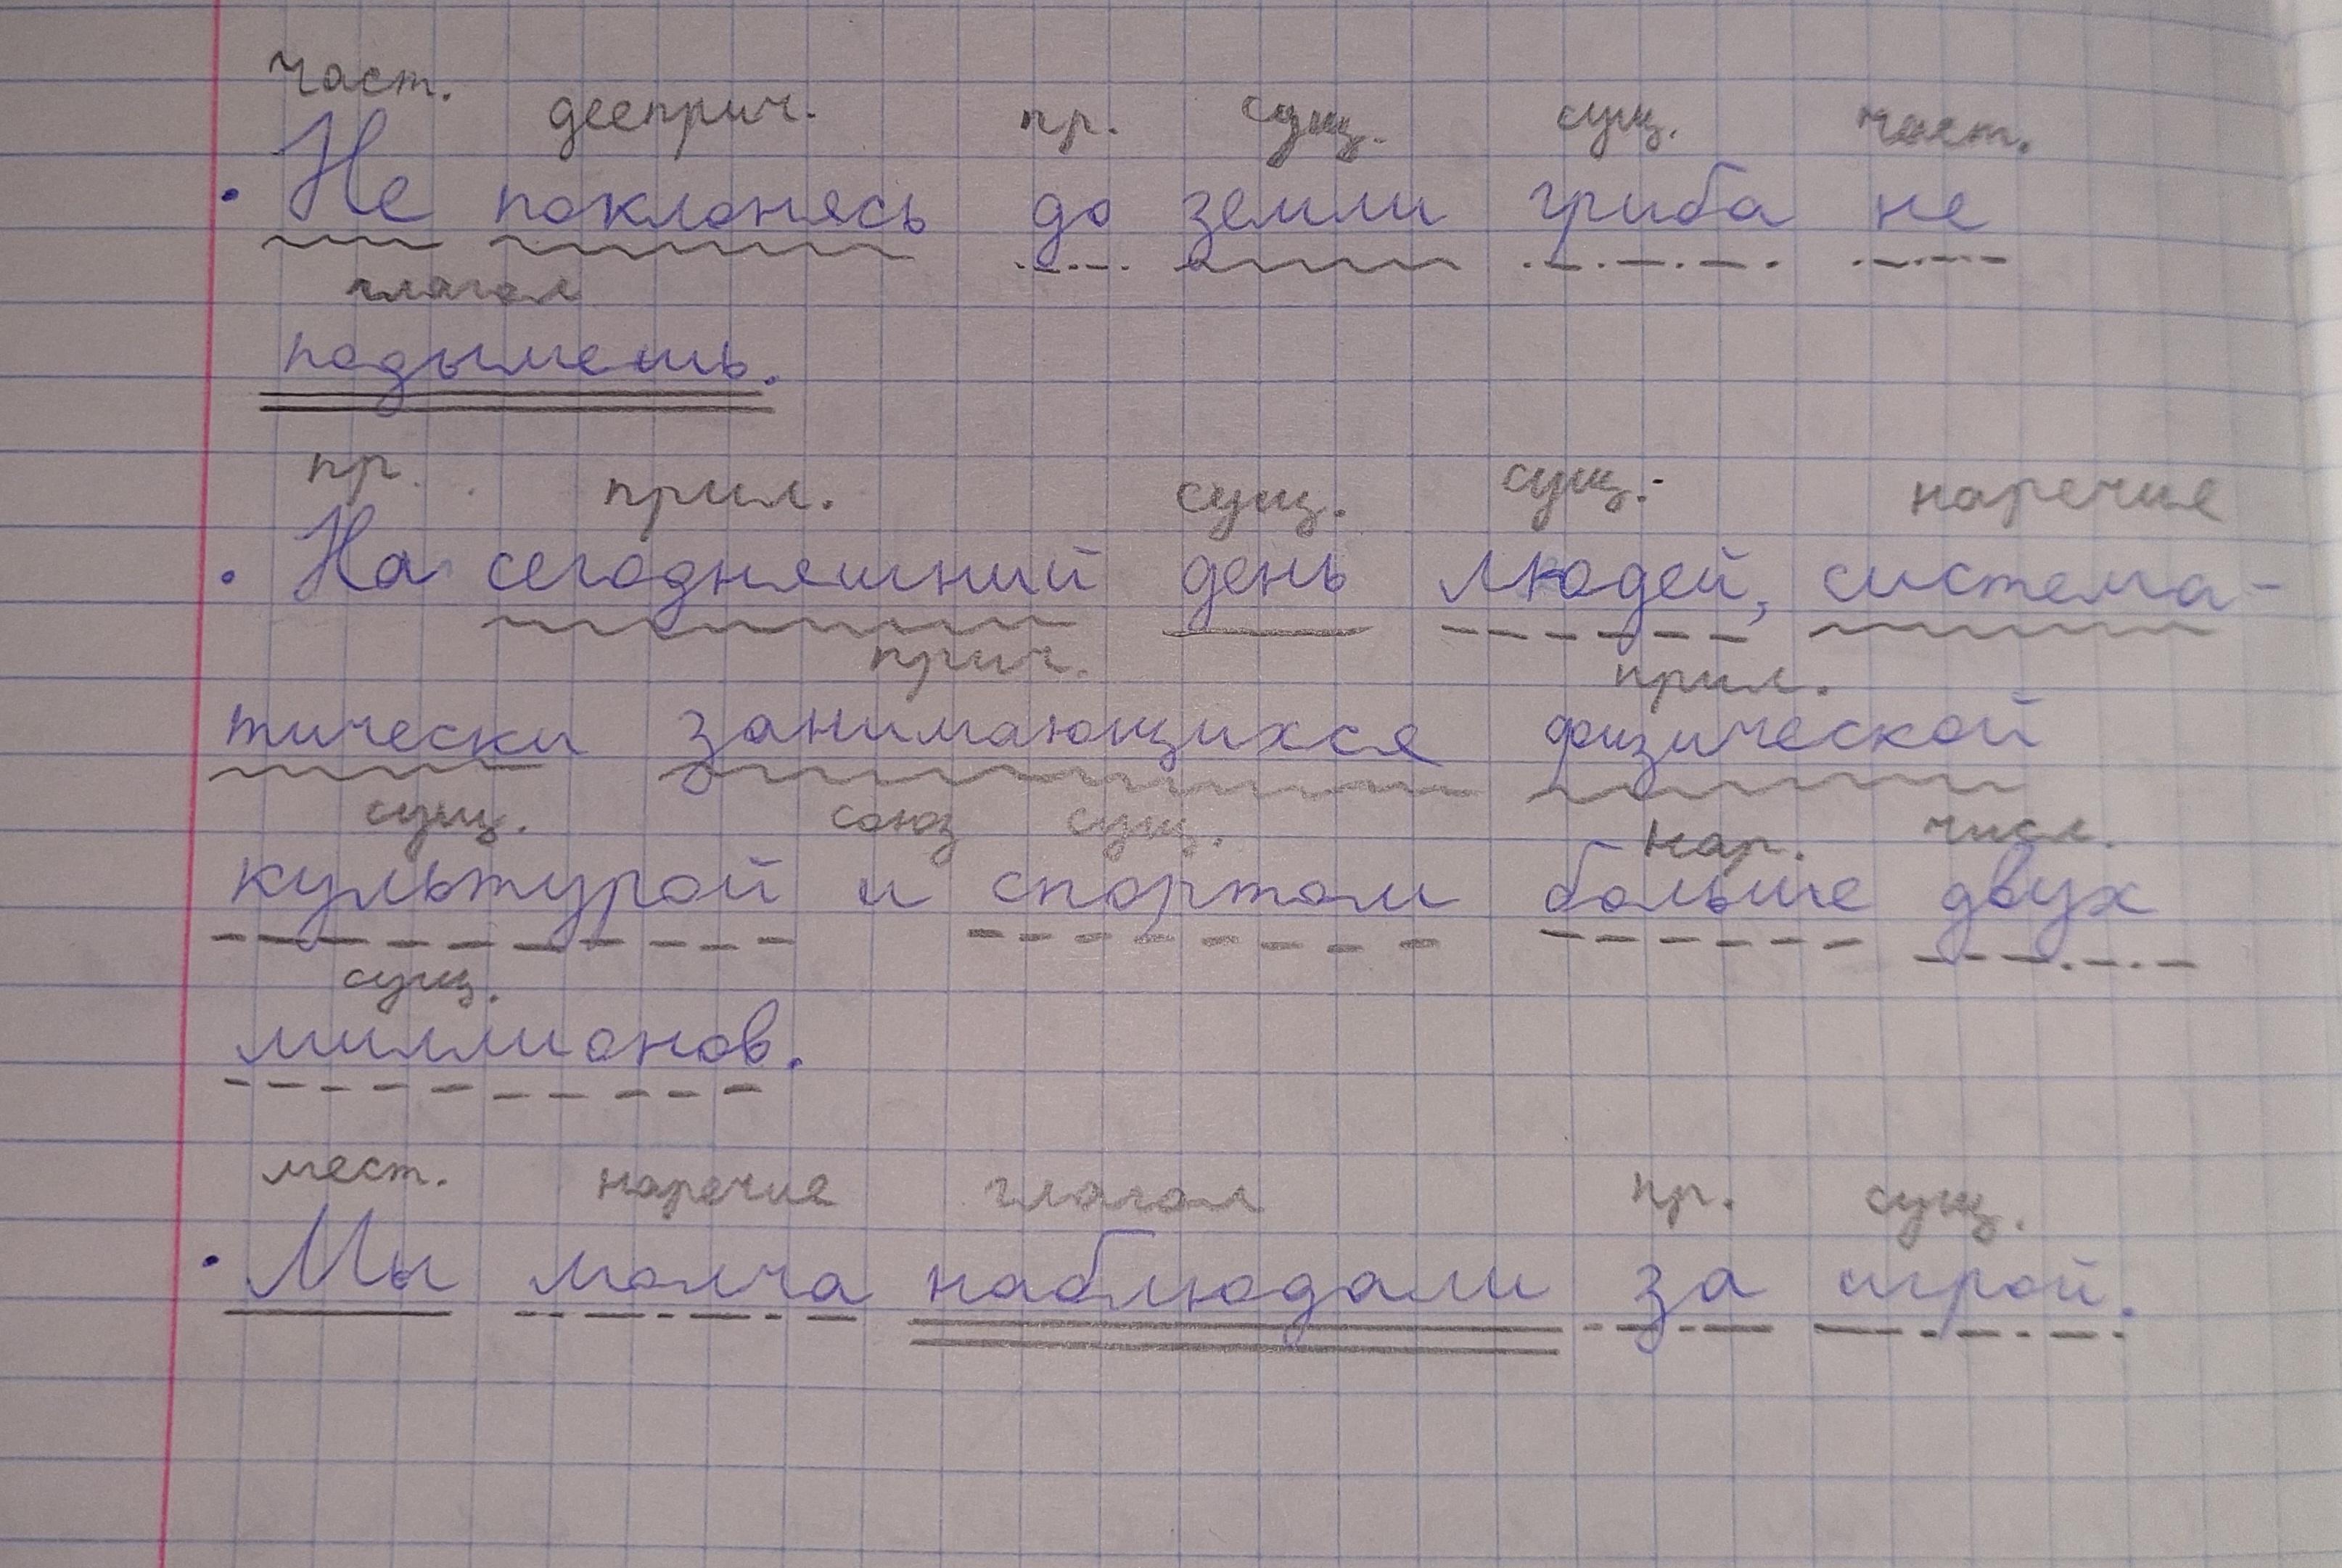 част. дееприч. пр. сущ. сущ. част.
• Не поклонясь до земли гриба не
глагол
подымешь.
пр. прил. сущ. сущ. наречие
• На сегодняшний день людей, система-
прич. прил.
тически занимающихся физической
сущ. союз сущ. нар. числ.
культурой и спортом больше двух
сущ.
миллионов.
мест. наречие глагол пр. сущ.
• Мы молча наблюдали за игрой.